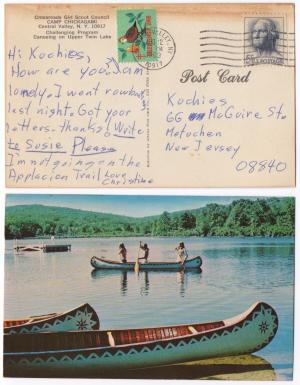 Crossroads Girl Scout Council
CAMP CHICKAGAMI
Central Valley, N. Y. 10917
Challenging Program
Canoeing on Upper Twin Lake
Hi Kochies,
How are you. I am
lonely. I went rowboat
last night. Got your
letters. thanks. Write
to Susie Please
I'm not going on the
Applacion Trail Love
Christine
10917
Post Card
Kochies
66 McGuire St
Metuchen
New Jersey
08840